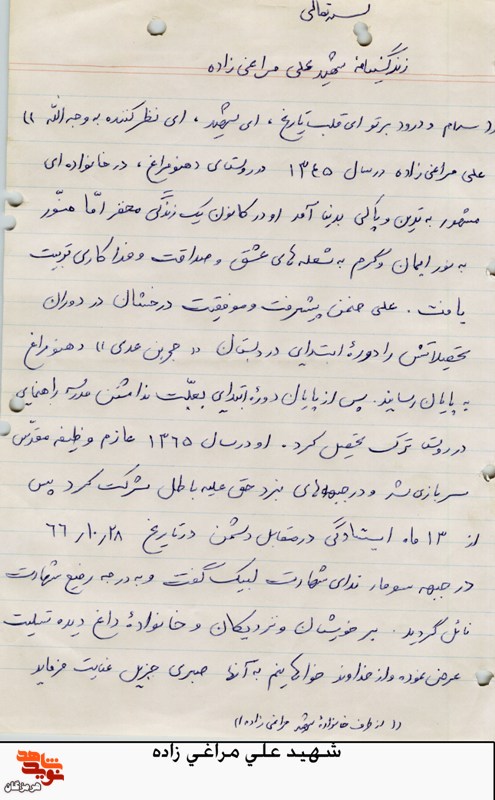 بسمه تعالی
زندگینامهٔ شهید علی مراغی زاده
(( سلام و درود بر تو ای قلب تاریخ ، ای شهید ، ای نظر کننده به وجه الله ))
علی مراغی زاده در سال ۱۳۴۵ در روستای دهنو مراغ ، در خانواده ای
مشهور به تدین و پاکی بدنیا آمد او در کانون یک زندگی محقر امّا منّور
به نور ایمان و گرم به شعله های عشق و صداقت و فداکاری تربیت
یافت . علی ضمن پیشرفت و موفقیت درخشان در دوران
تحصیلاتش را دورهٔ ابتدای در دبستان (( حجر بن عدی )) دهنو مراغ
به پایان رساند . پس از پایان دورهٔ ابتدای بعلّت نداشتن مدرسه راهنمای
در روستا ترک تحصیل کرد . او در سال ۱۳۶۵ عازم وظیفه مقدّس
سربازی شد و در جبهه های نبرد حق علیه باطل شرکت کرد پس
از ۱۳ ماه ایستادگی در مقابل دشمن در تاریخ ۶۶/۱۰/۲۸
در جبهه سومار ندای شهادت لبیک گفت و به درجه رفیع شهادت
نائل گردید . بر خویشان و نزدیکان و خانوادهٔ داغ دیده تسلیت
عرض نموده و از خداوند خواهانیم به آنها صبری جزیل عنایت فرماید
(( از طرف خانوادهٔ شهید مراغی زاده ))
شهيد علي مراغي زاده
نوید شاهد
هرمزگان